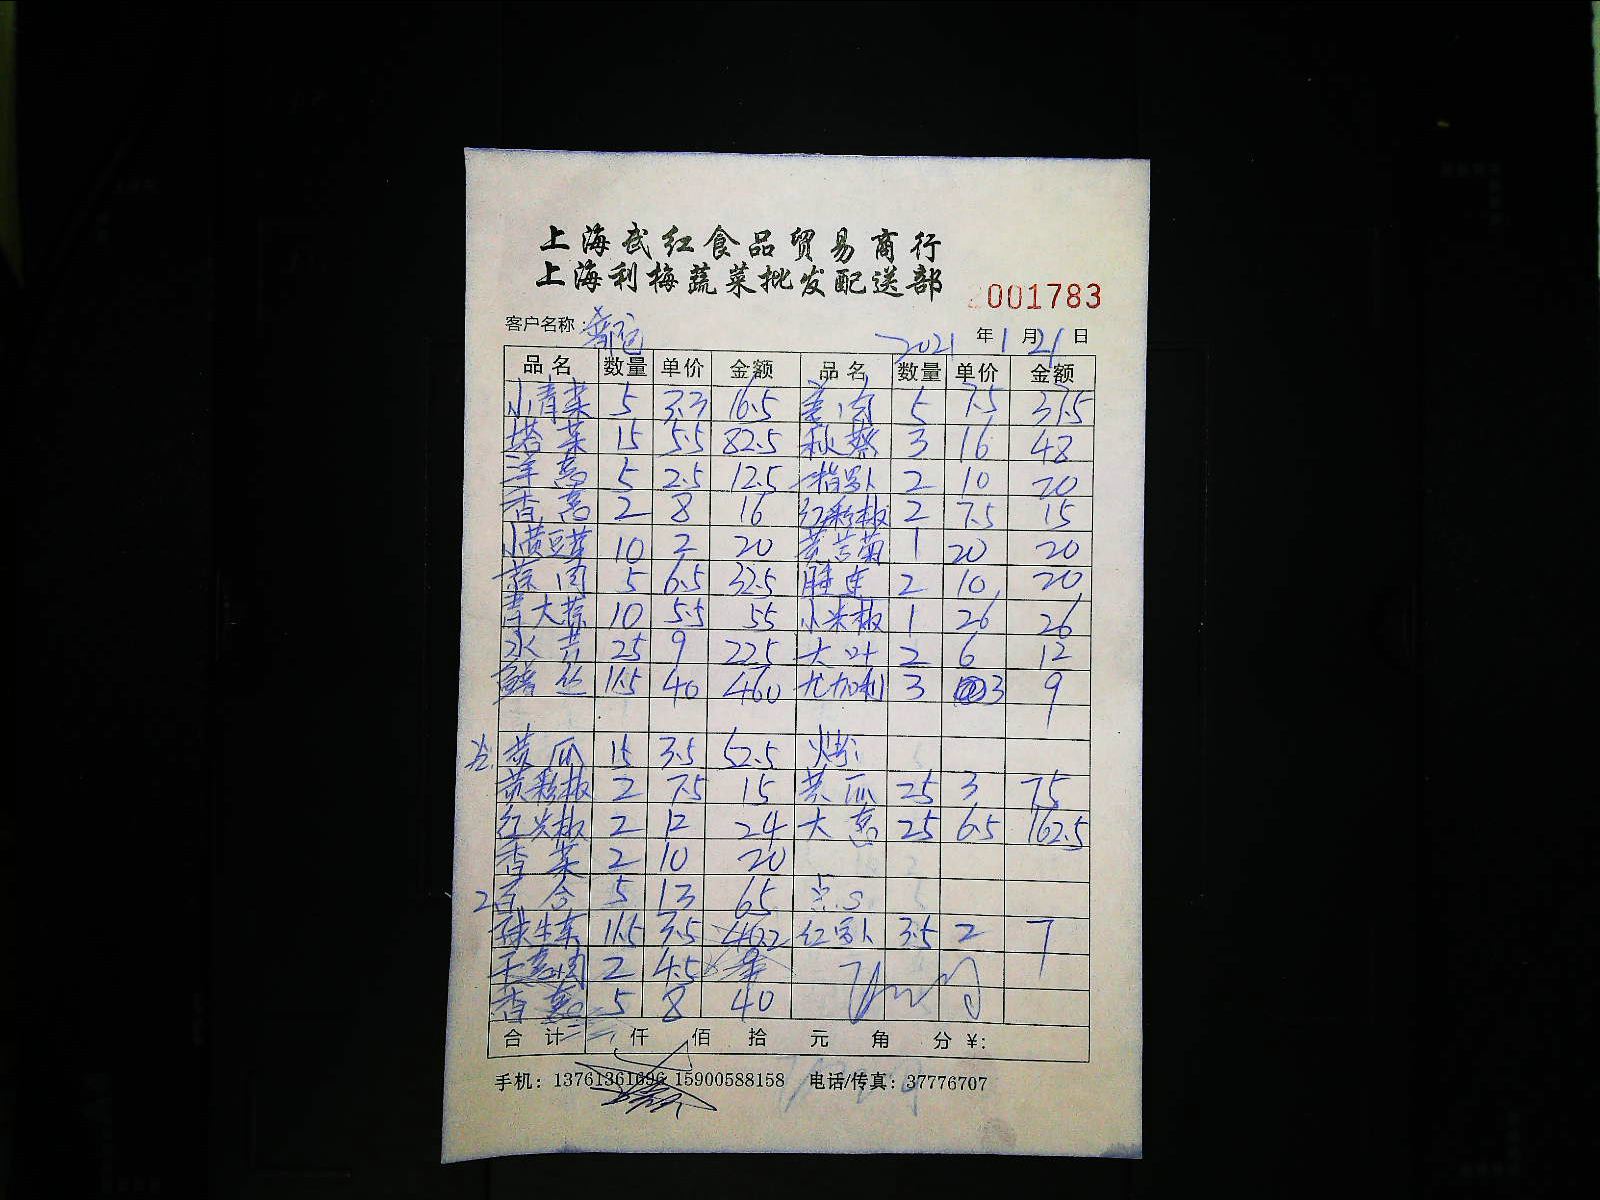 上海武红食品贸易商行
上海利梅蔬菜批发配送部
2001783
客户名称:
2021 年 1 月 21 日
品名 数量 单价 金额 品名 数量 单价 金额
小青菜 5 3.3 16.5 姜肉 5 7.5 37.5
塔菜 15 5.5 82.5 秋葵 3 16 48
洋葱 5 2.5 12.5 一指罗卜 2 10 20
香葱 2 8 16 红彩椒 2 7.5 15
小黄豆芽 10 2 20 黄苦菊 1 20 20
蒜肉 5 6.5 32.5 2 10 20
青大蒜 10 5.5 55 小米椒 1 26 26
水芹 25 9 225 大叶 2 6 12
鳝丝 11.5 40 460 尤加利 3 3 9
冷 黄瓜 15 3.5 52.5
黄彩椒 2 7.5 15 黄瓜 25 3 75
红尖椒 2 12 24 大葱 25 6.5 162.5
香菜 2 10 20
2 百合 5 13 65 点心
11.5 3.5 40.2 红罗卜 3.5 2 7
2 4.5 9
香葱 5 8 40
合计 仟 佰 拾 元 角 分 ¥:
手机: 13761361696 15900588158 电话/传真: 37776707